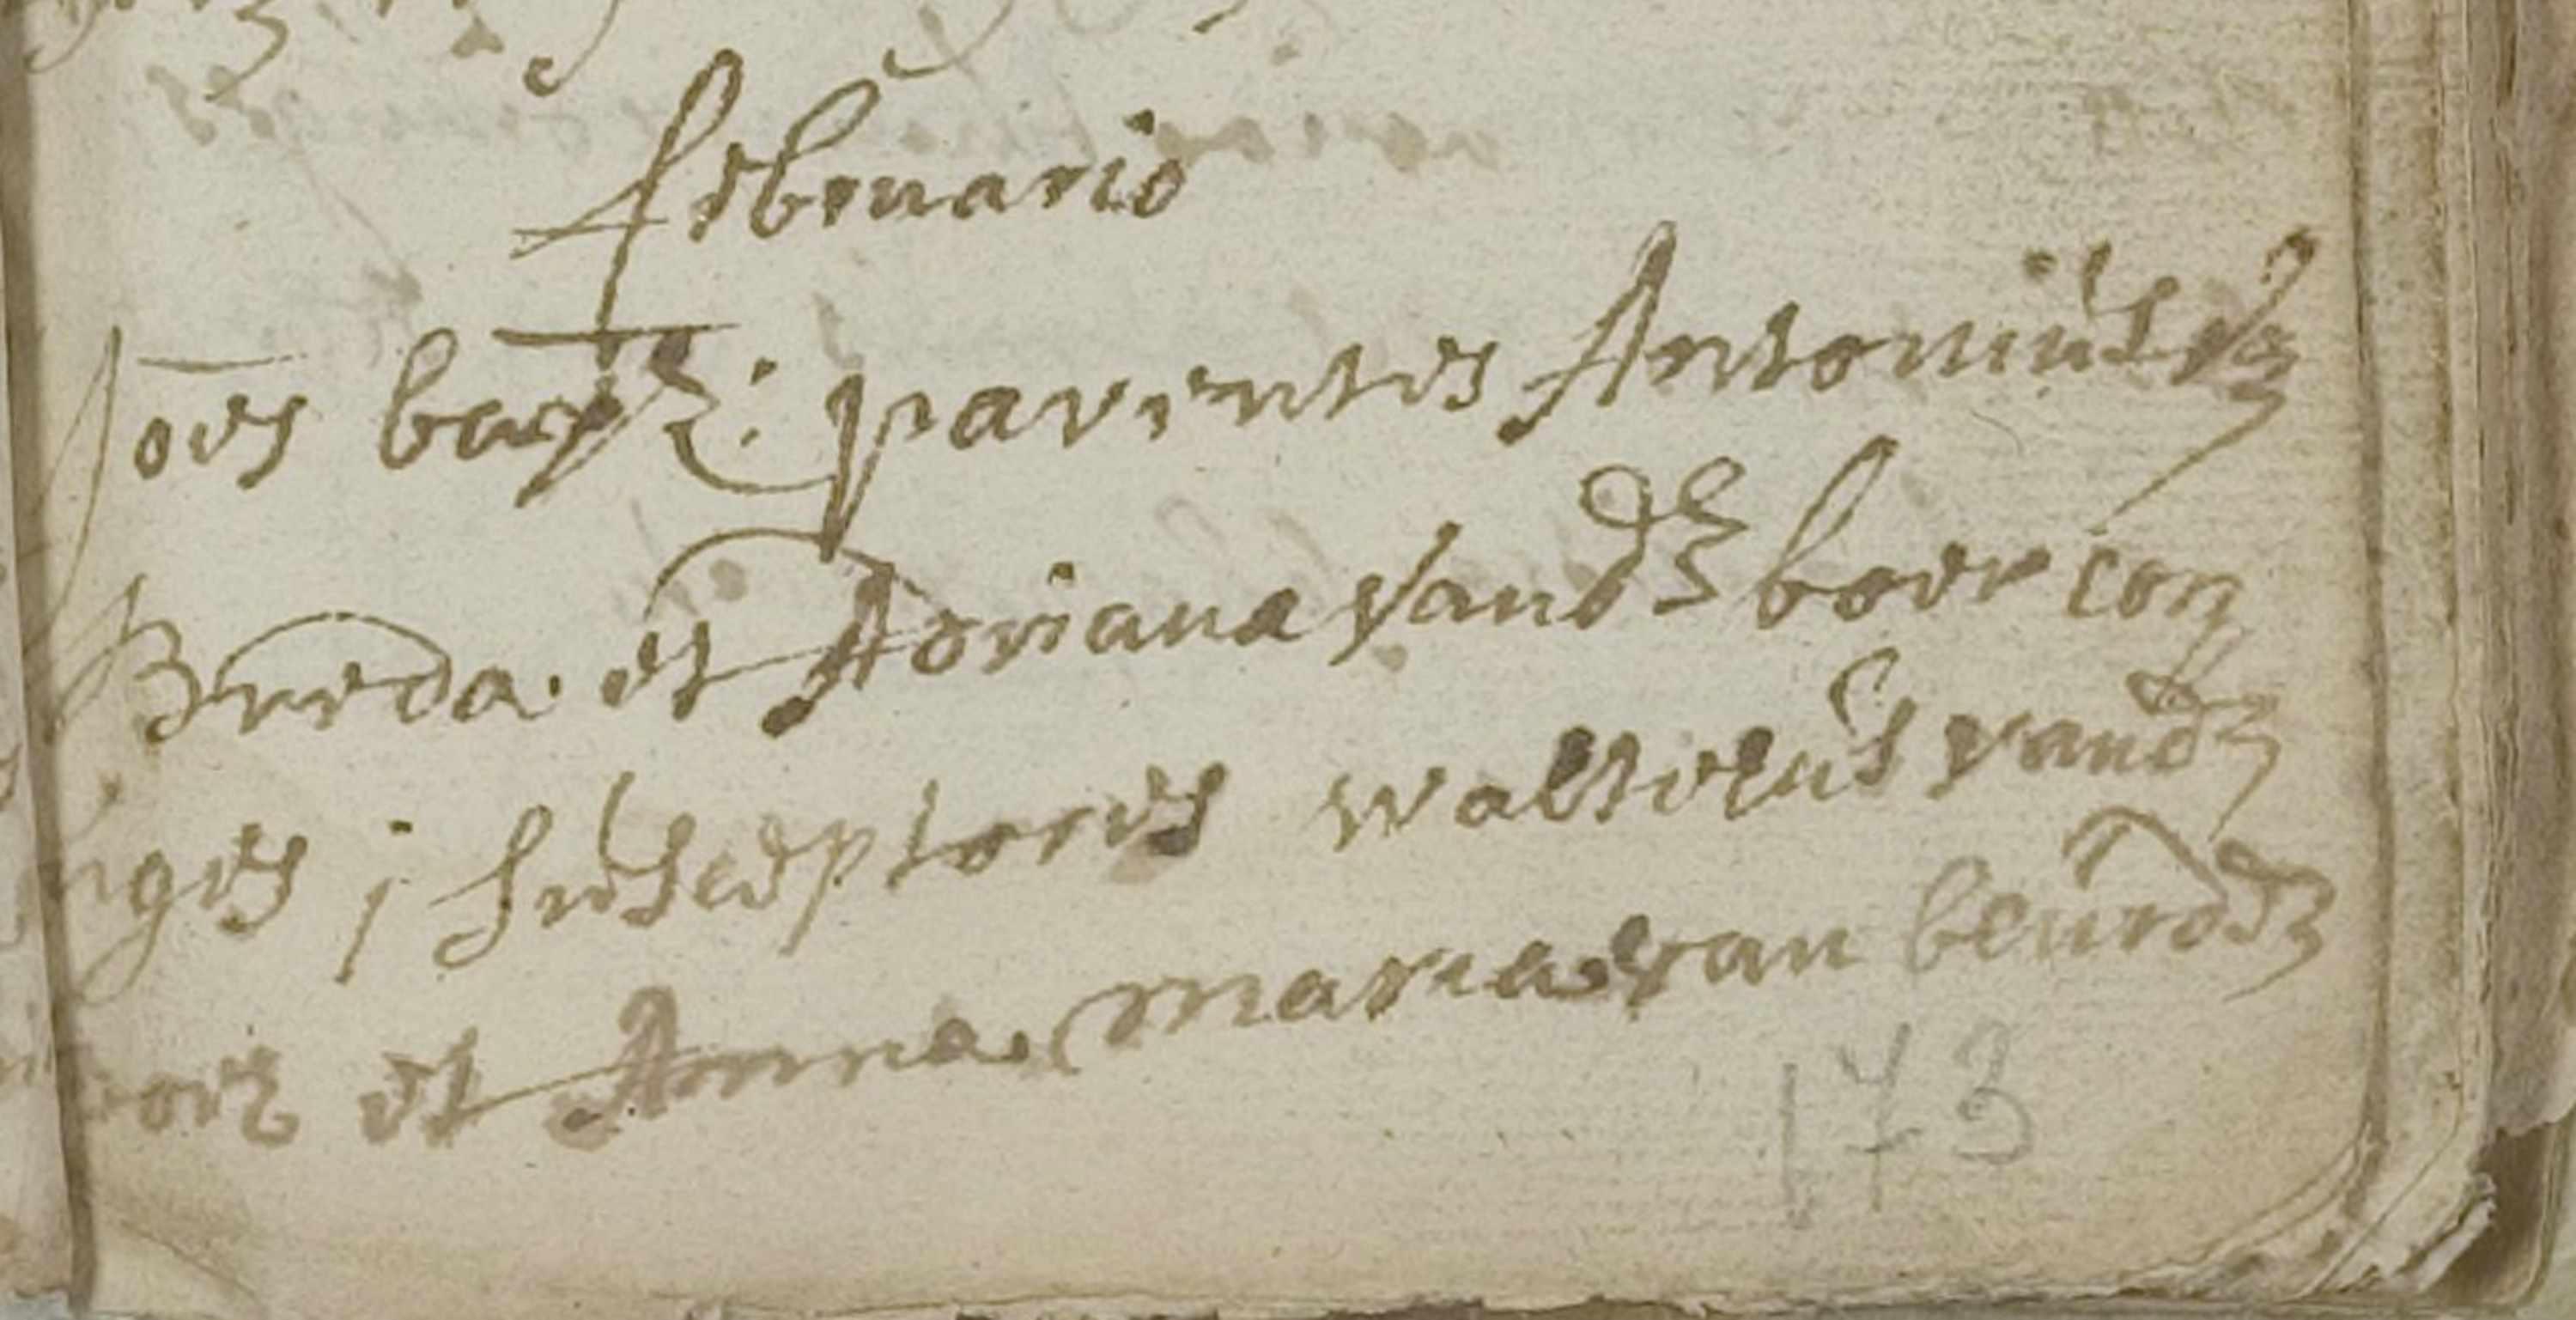 februario
Joes bapt: parentes Antonius de
Breda. et Adriana vander boer con
iges ; susceptores walterus vand
boer et Anna maria van beurd
173